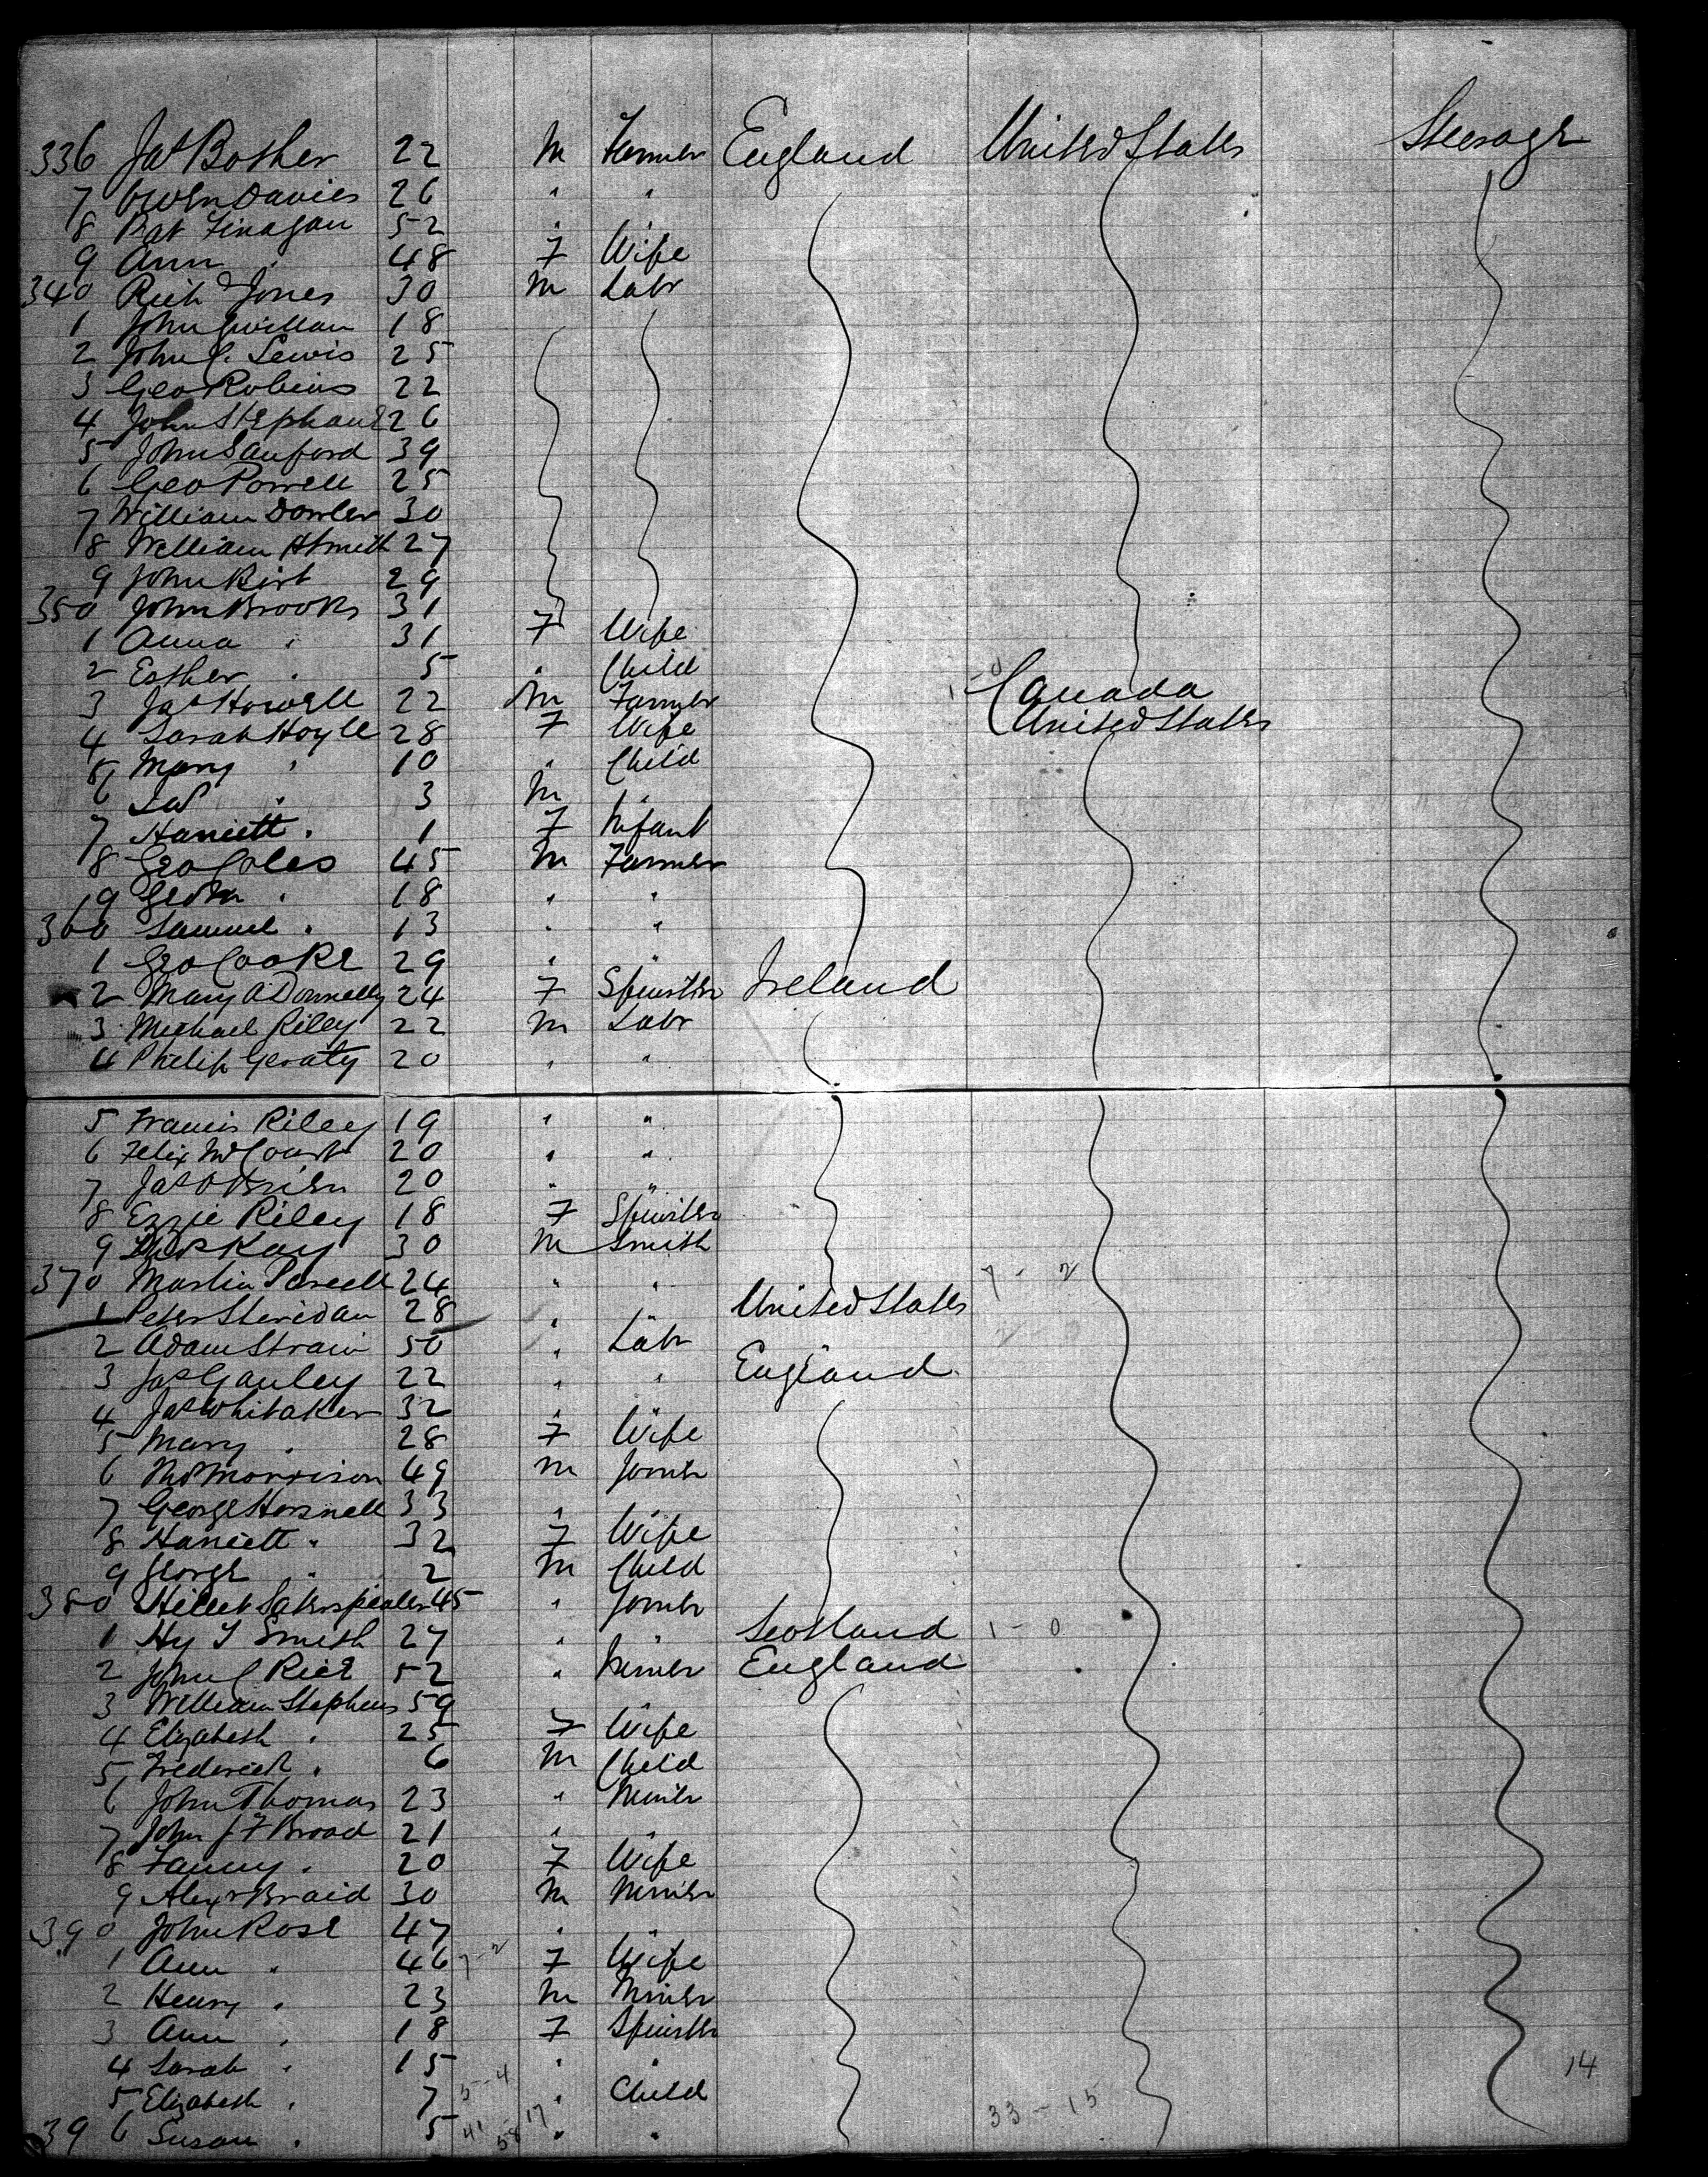 336 Jas Bosher 22 M Farmer England United States Steerage
7 Owen Davies 26 " "
8 Pat Finagan 52 "
9 Ann " 48 F Wife
340 Rich Jones 30 M Labr
1 John Gwillam 18
2 John C. Lewis 25
3 Geo Robins 22
4 John Stephans 26
5 John Sanford 39
6 Geo Powell 25
7 William Dowler 30
8 William H Smith 27
9 John Birt 29
350 John Brooks 31
1 Anna " 31 F Wife
2 Esther " 5 " Child
3 Jas Howell 22 M Farmer Canada
4 Sarah Hoyle 28 F Wife United States
5 Mary " 10 " Child
6 " 3 M "
7 Harriett " 1 F Infant
8 Geo Coles 45 M Farmer
9 " 18 " "
360 Samuel " 13 " "
1 Geo Cooke 29 " "
2 Mary A Donnelly 24 F Spinster Ireland
3 Michael Riley 22 M Labr
4 Philip Geraty 20 " "
5 Francis Riley 19 " "
6 Felix McCourt 20 " "
7 Jas O'Brien 20 " "
8 Ezzie Riley 18 F Spinster
9 Kay 30 M Smith
370 Martin Purcell 24 " " 7 - 2
1 Peter Sheridan 28 " " United States
2 Adam Strain 50 " Labr
3 Jas Gauley 22 " " England
4 Jas Whitaker 32 " "
5 Mary " 28 F Wife
6 Morrison 49 M Joiner
7 George Horsnell 33 " "
8 Harriett " 32 F Wife
9 George " 2 M Child
380 45 " Joiner
1 Hy T Smith 27 " " Scotland 1 - 0
2 John C Rice 52 " Miner England
3 William Stephens 59 " "
4 Elizabeth " 25 F Wife
5 Frederick " 6 M Child
6 John Thomas 23 " Miner
7 John J F Broad 21 " "
8 Fanny " 20 F Wife
9 Alexr Braid 30 M Miner
390 John Rose 47 " "
1 Ann " 46 7-2 F Wife
2 Henry " 23 M Miner
3 Ann " 18 F Spinster
4 Sarah " 15 " "
5 Elizabeth " 7 5-4 " Child 33 - 15 14
396 Susan " 5 41 58 17 " "